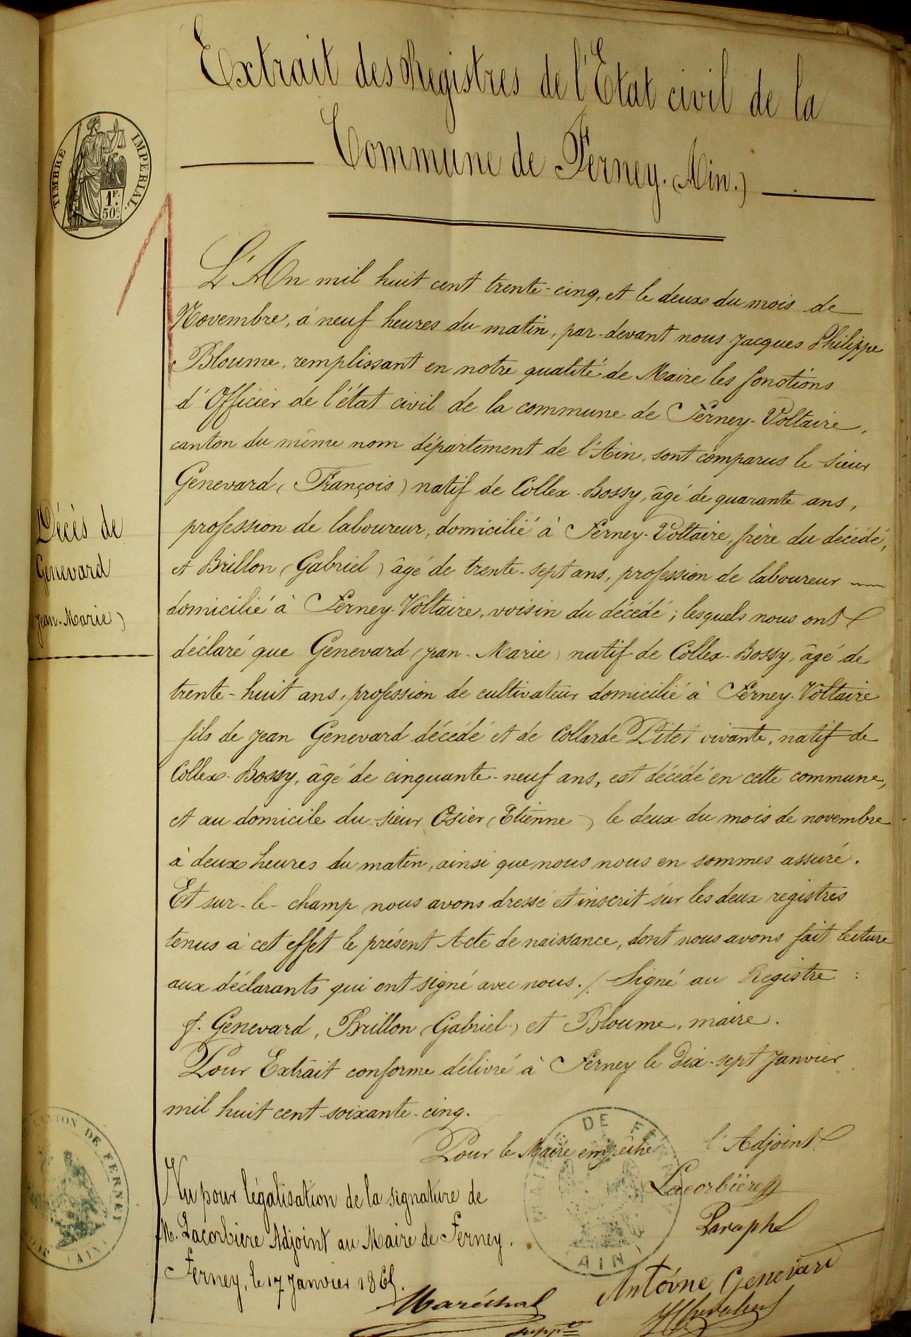 Extrait des Registres de l'Etat civil de la
Commune de Ferney. (Ain.)
TIMBRE IMPERIAL.
1F. 50c.
L'An mil huit cent trente-cinq, et le deux du mois de
Novembre, à neuf heures du matin, par-devant nous Jacques Philippe
Bloume, remplissant en notre qualité de Maire les fonctions
d'Officier de l'état civil de la commune de Ferney-Voltaire,
canton du même nom département de l'Ain, sont comparus le sieur
Genevard (François) natif de Collex-Bossy, âgé de quarante ans,
profession de laboureur, domicilié à Ferney-Voltaire, frère du décédé,
et Brillon (Gabriel) âgé de trente-sept ans, profession de laboureur
domicilié à Ferney-Voltaire, voisin du décédé; lesquels nous ont
déclaré que Genevard (Jean-Marie) natif de Collex-Bossy, âgé de
trente-huit ans, profession de cultivateur domicilié à Ferney-Voltaire
fils de Jean Genevard décédé et de Collarde Pitet vivante, natif de
Collex-Bossy, âgé de cinquante-neuf ans, est décédé en cette commune,
et au domicile du sieur Osier (Etienne) le deux du mois de novembre
à deux heures du matin, ainsi que nous nous en sommes assuré.
Et sur-le-champ nous avons dressé et inscrit sur les deux registres
tenus à cet effet le présent Acte de naissance, dont nous avons fait lecture
aux déclarants qui ont signé avec nous. / Signé au Registre :
f. Genevard, Brillon (Gabriel) et Bloume, maire.
Pour Extrait conforme délivré à Ferney le Dix-sept Janvier
mil huit cent soixante-cinq.
Décès de
Genevard
(Jean-Marie)
Pour le Maire empêché l'Adjoint
Lacorbière
Paraphe
Vu pour légalisation de la signature de
M. Lacorbière Adjoint au Maire de Ferney.
Ferney, le 17 Janvier 1865.
Maréchal
supp.nt
Antoine Genevard
MAIRIE DE FERNEY
(AIN)
CANTON DE FERNEY
(AIN)